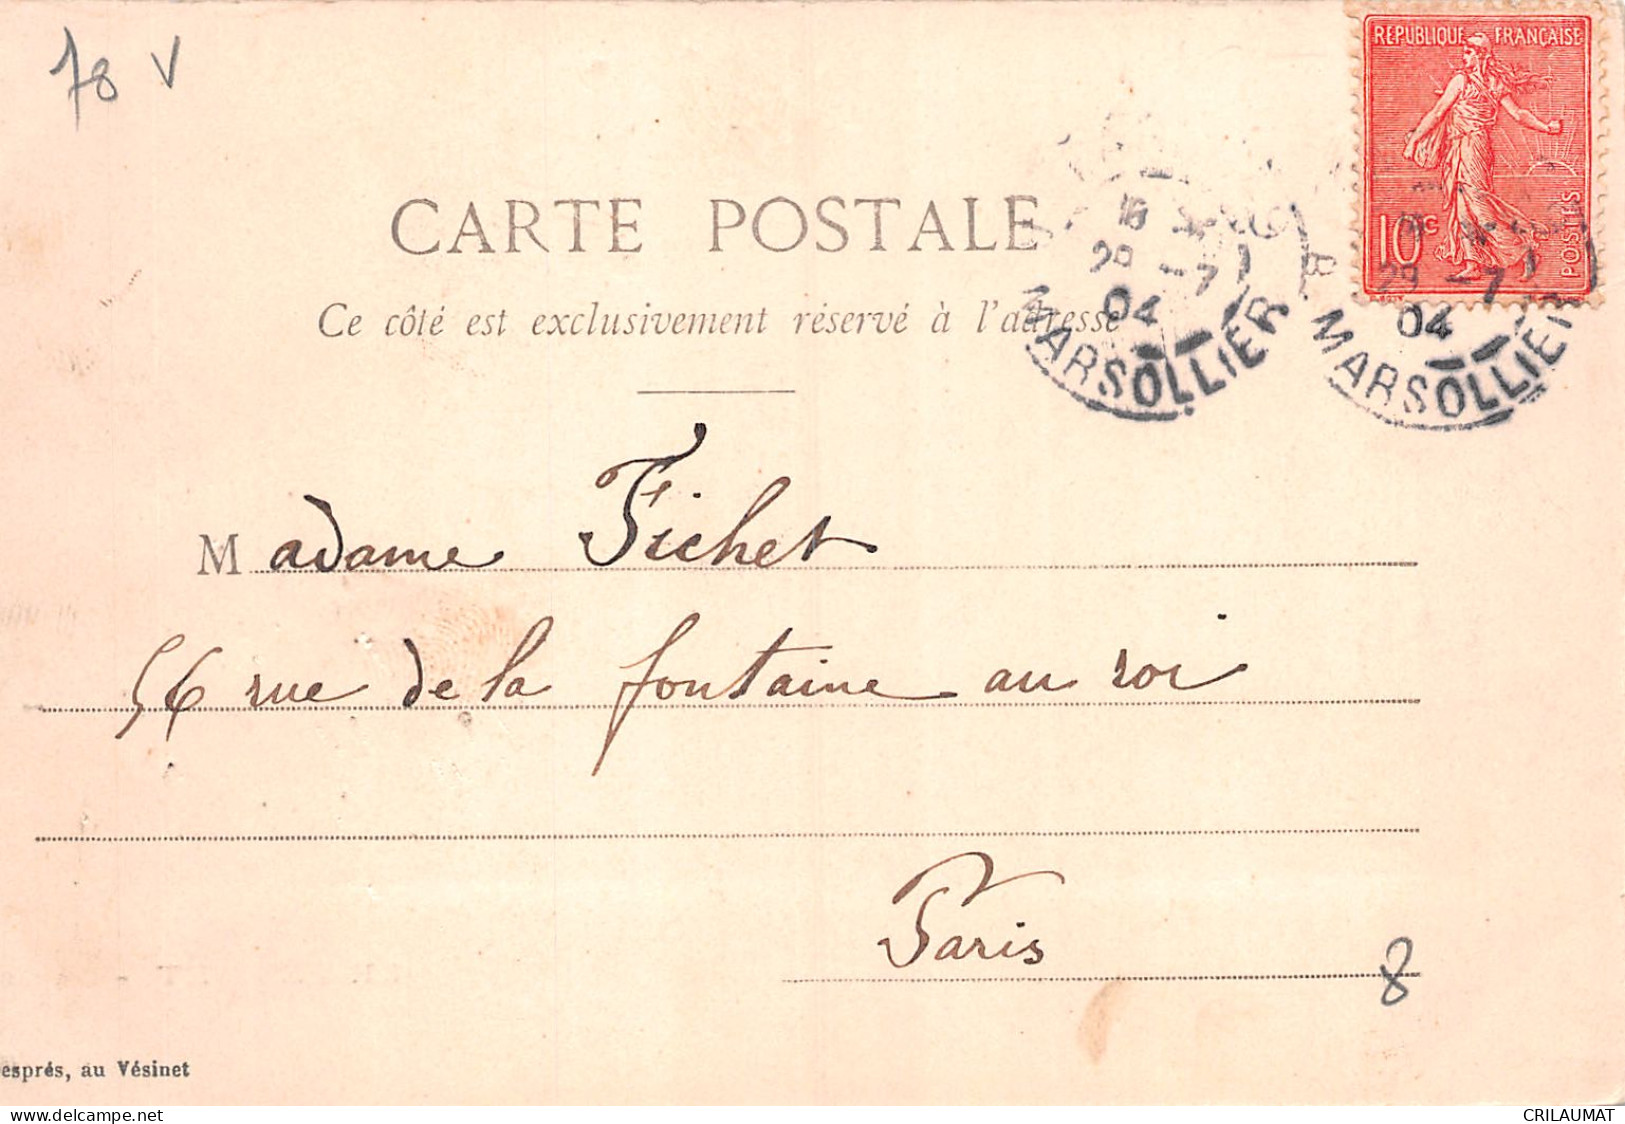 78 V
RÉPUBLIQUE FRANÇAISE
10c
POSTES
18
29 -7
04
MARSOLLIER
R. MARSOLLIER
29 -7
04
CARTE POSTALE
Ce côté est exclusivement réservé à l'adresse
Madame Fichet
56 rue de la fontaine au roi
Paris
8
esprés, au Vésinet
www.delcampe.net
CRILAUMAT